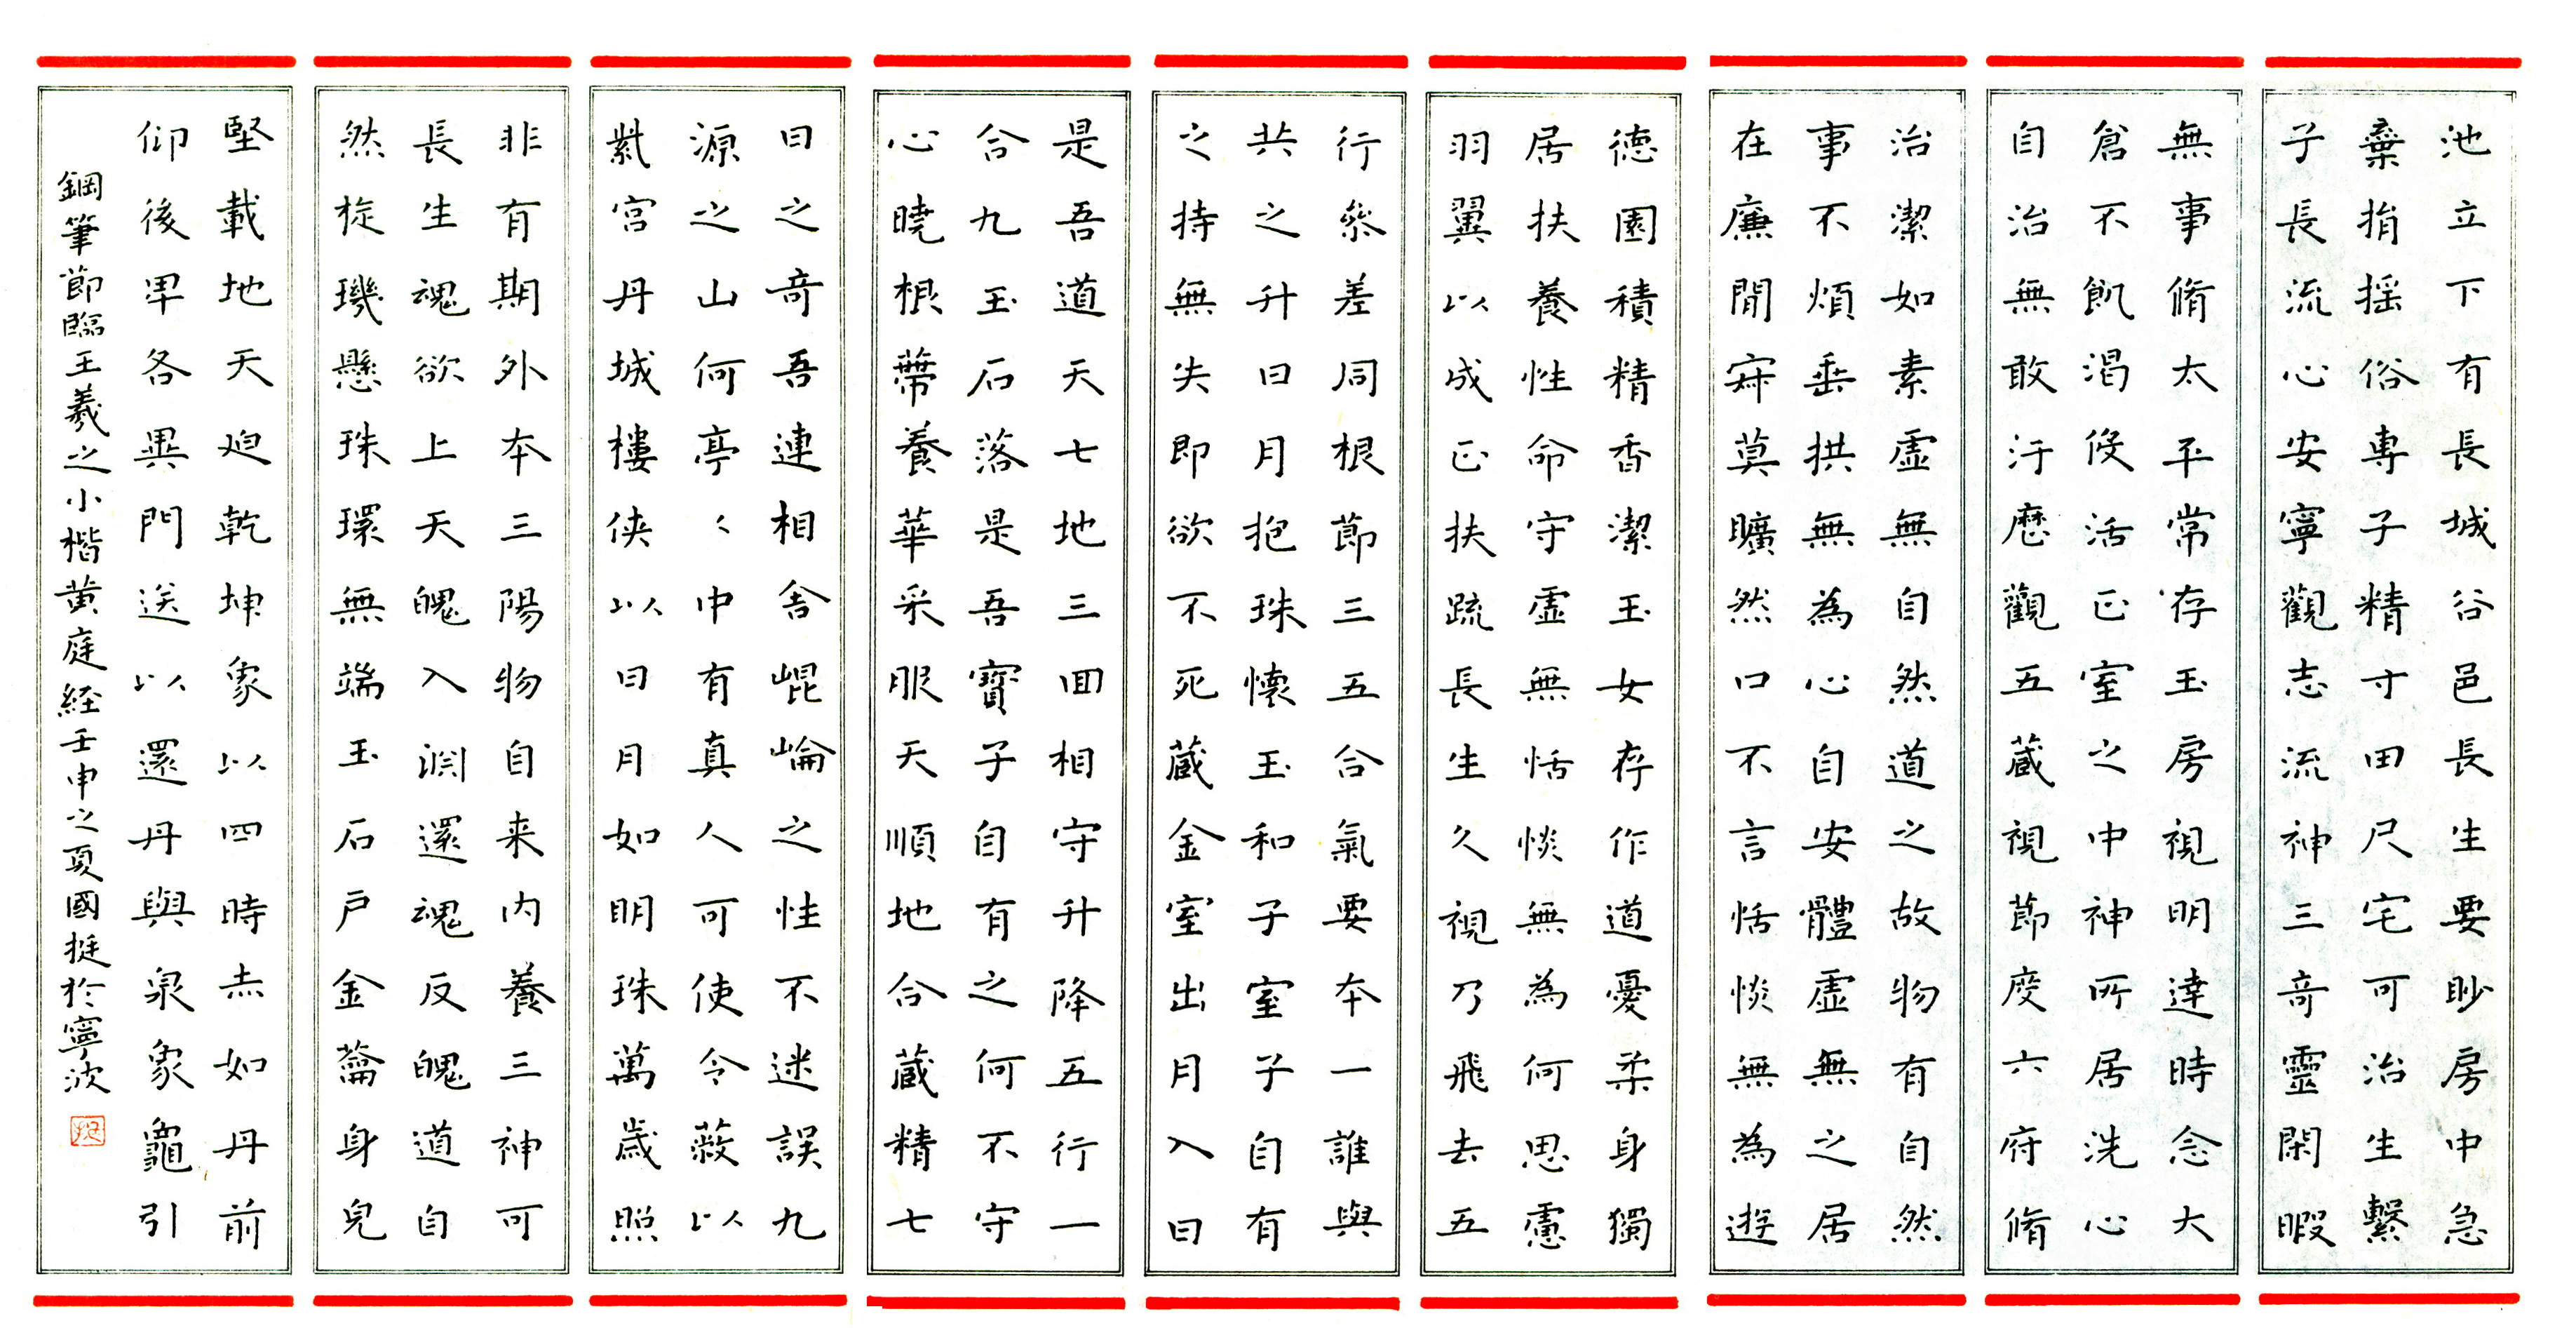 池立下有長城谷邑長生要眇房中急
棄捐摇俗専子精寸田尺宅可治生繫
子長流心安寧觀志流神三奇靈閑暇
無事脩太平常存玉房視明達時念大
倉不飢渴伇活正室之中神所居洗心
自治無敢汙歷觀五藏視節度六府脩
治潔如素虛無自然道之故物有自然
事不煩垂拱無為心自安體虛無之居
在廉間寂莫曠然口不言恬惔無為遊
德園積精香潔玉女存作道憂柔身獨
居扶養性命守虛無恬惔無為何思慮
羽翼以成正扶疏長生久視乃飛去五
行參差同根節三五合氣要本一誰與
共之升日月抱珠懷玉和子室子自有
之持無失即欲不死藏金室出月入日
是吾道天七地三回相守升降五行一
合九玉石落是吾寶子自有之何不守
心曉根蔕養華采服天順地合藏精七
日之奇吾連相舍崐崘之性不迷誤九
源之山何亭〻中有真人可使令蔽以
紫宫丹城樓俠以日月如明珠萬歲照
非有期外本三陽物自来内養三神可
長生魂欲上天魄入淵還魂反魄道自
然旋璣懸珠環無端玉石戶金籥身皃
堅載地天迴乾坤象以四時赤如丹前
仰後卑各異門送以還丹與泉象龜引
鋼筆節臨王羲之小楷黄庭経壬申之夏國挺於寧波